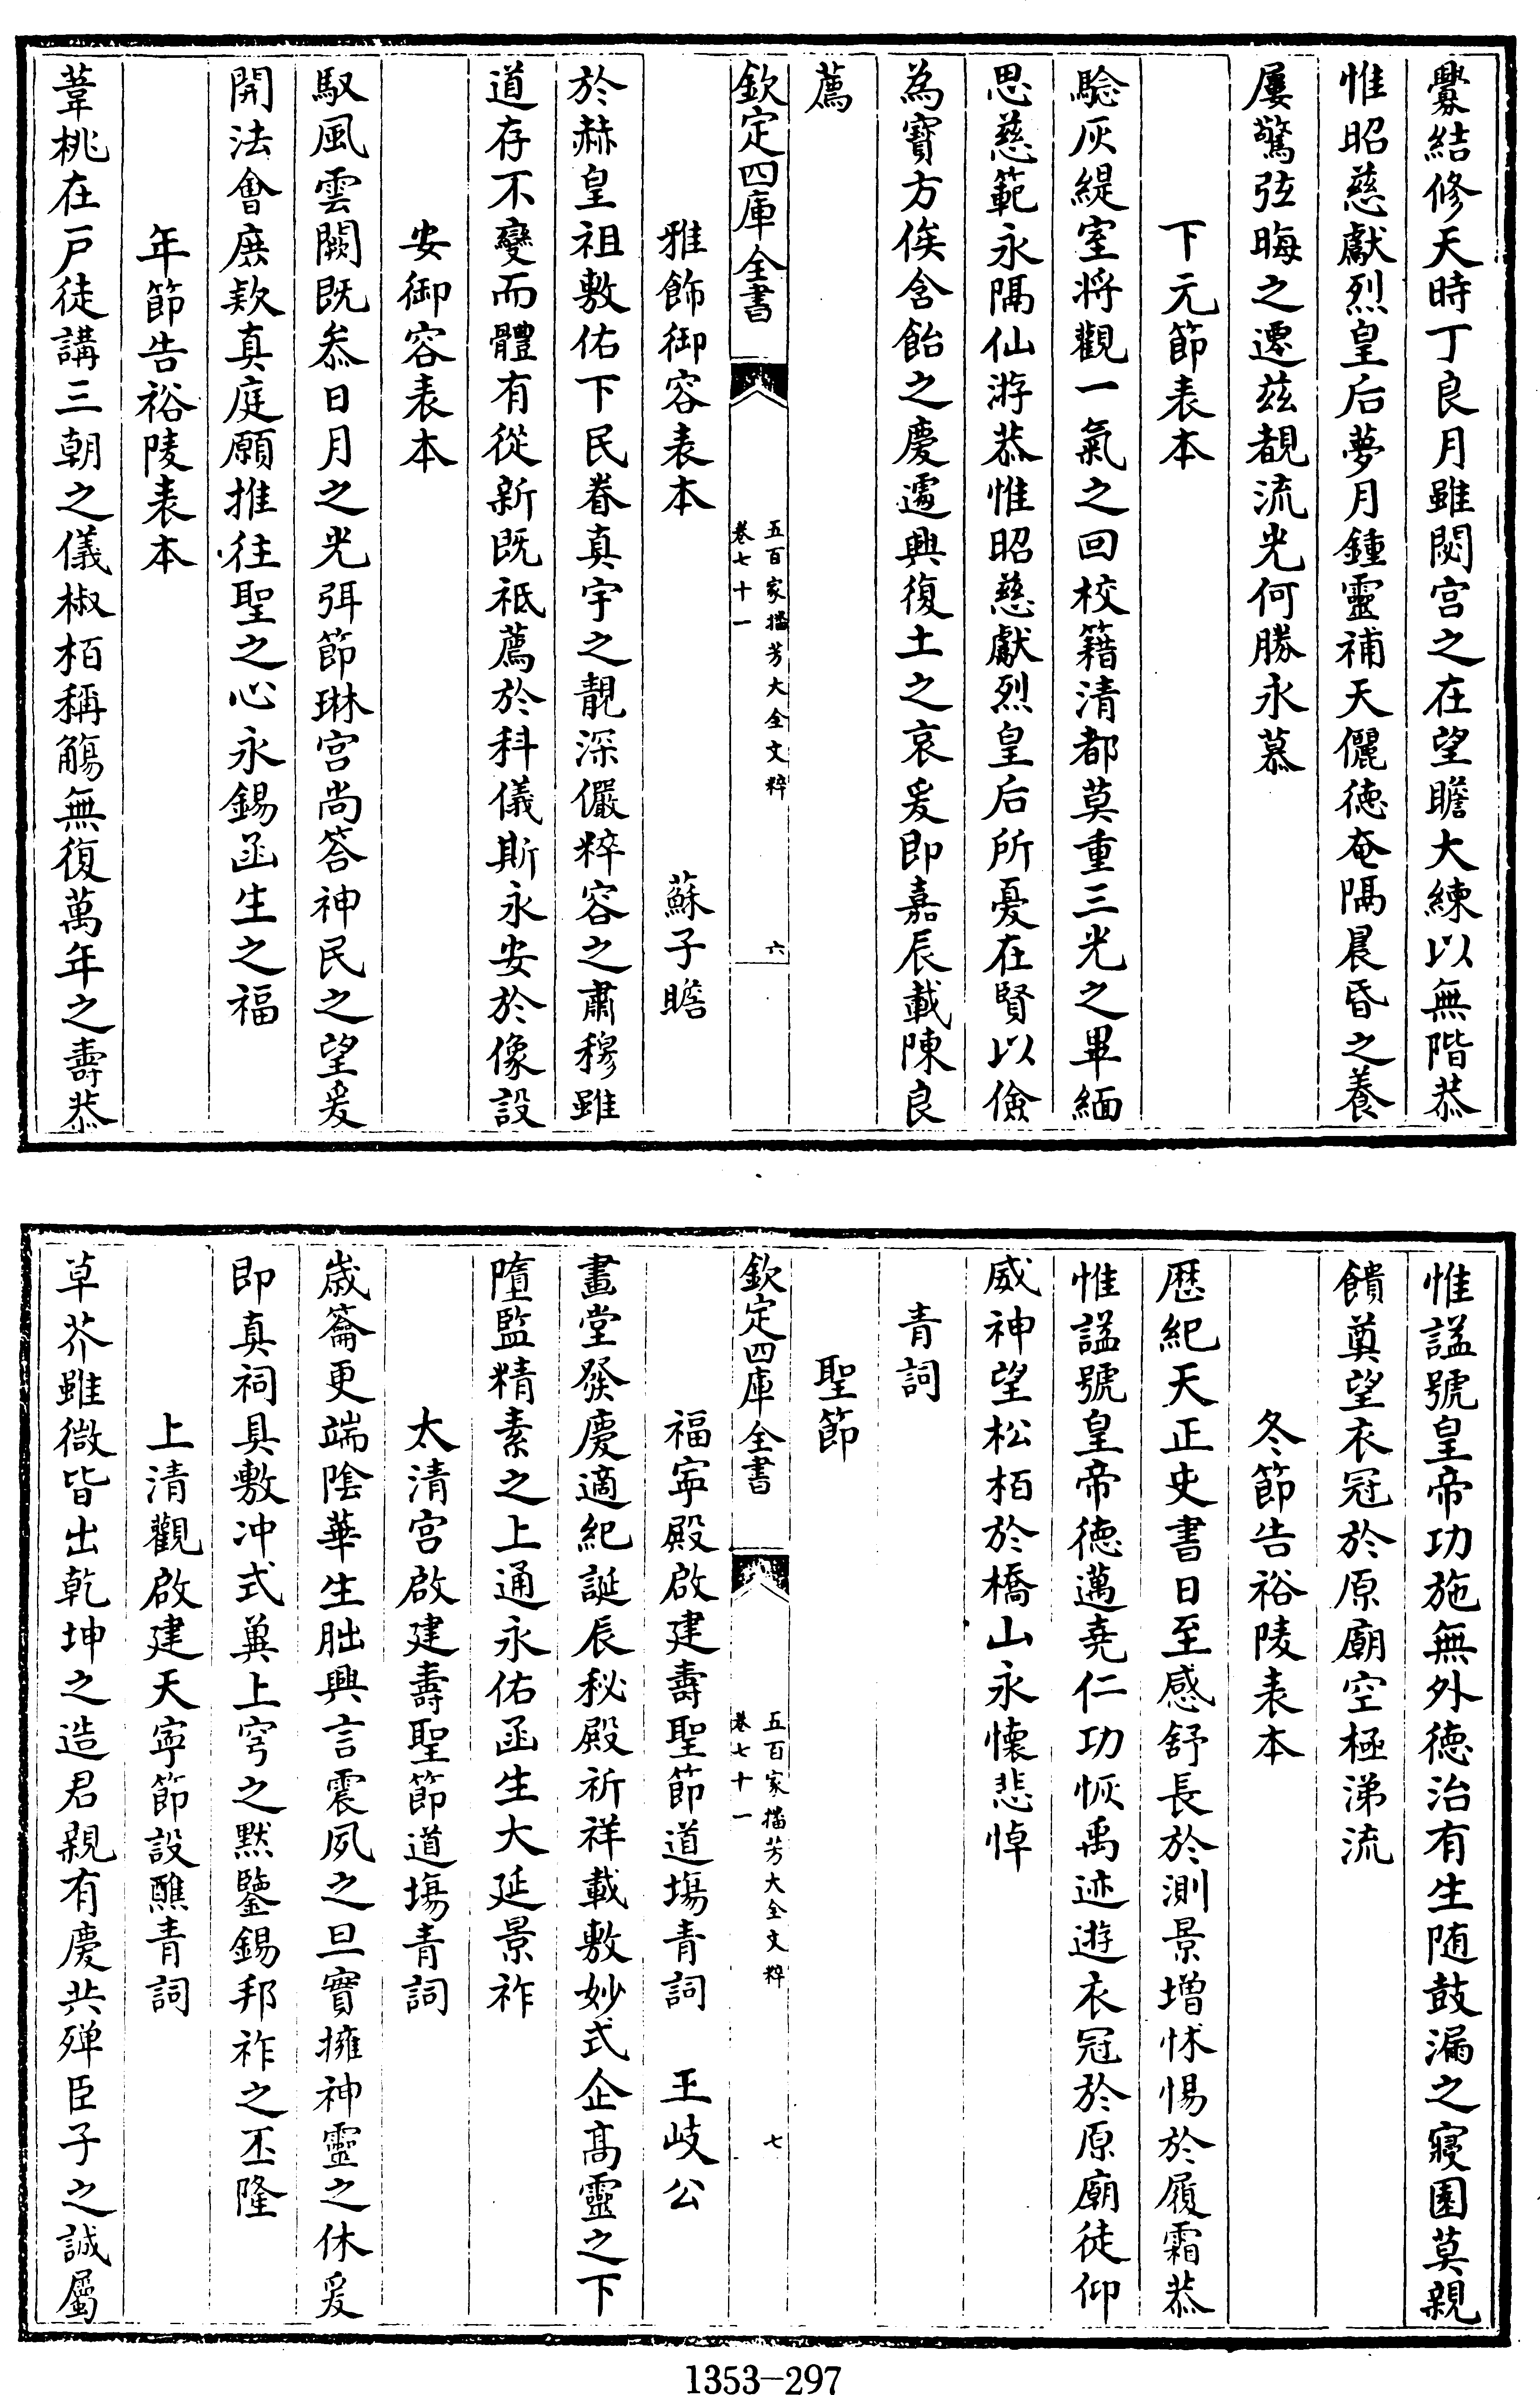 爨結修天時丁良月雖閟宫之在望瞻大練以無階恭
惟昭慈獻烈皇后夢月鍾靈補天儷徳奄隔晨昏之養
屢驚弦晦之遷兹覩流光何勝永慕
下元節表本
驗灰緹室将觀一氣之回校籍清都莫重三光之畢緬
思慈範永隔仙游恭惟昭慈獻烈皇后所憂在賢以儉
為寳方俟含飴之慶遽興復土之哀爰即嘉辰載陳良
薦
欽定四庫全書
五百家播芳大全文粹
卷七十一
六
雅飾御容表本
蘇子瞻
於赫皇祖敷佑下民眷真宇之靚深儼粹容之肅穆雖
道存不變而體有從新既祗薦於科儀斯永安於像設
安御容表本
馭風雲闕既叅日月之光弭節琳宫尚答神民之望爰
開法會庶款真庭願推徃聖之心永錫函生之福
年節告裕陵表本
葦桃在戸徒講三朝之儀椒栢稱觴無復萬年之壽恭
惟謚號皇帝功施無外徳治有生随鼓漏之寝園莫親
饋奠望衣冠於原廟空極涕流
冬節告裕陵表本
歴紀天正史書日至感舒長於測景增怵惕於履霜恭
惟謚號皇帝徳邁堯仁功恢禹迹遊衣冠於原廟徒仰
威神望松栢於橋山永懐悲悼
青詞
聖節
欽定四庫全書
五百家播芳大全文粹
卷七十一
七
福寜殿啟建壽聖節道塲青詞
王岐公
畫堂發慶適紀誕辰秘殿祈祥載敷妙式企髙靈之下
墮監精素之上通永佑函生大延景祚
太清宫啟建壽聖節道塲青詞
歲籥更端陰華生朏興言震夙之旦實擁神靈之休爰
即真祠具敷冲式兾上穹之黙鑒錫邦祚之丕隆
上清觀啟建天寧節設醮青詞
草芥雖微皆出乾坤之造君親有慶共殫臣子之誠屬
1353-297